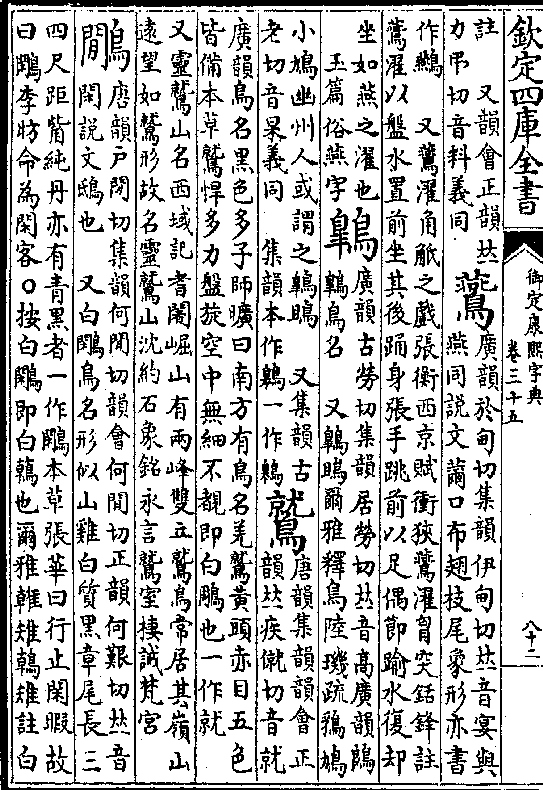 欽定四庫全書
御定康熙字典
卷三十五
八十二
註 又韻會正韻𠀤
力弔切音料義同
鷰
廣韻於甸切集韻伊甸切𠀤音宴與
燕同說文籋口布翅枝尾象形亦書
作 又鷰濯角觝之戲張衡西京賦衝狹鷰濯胷突銛鋒註
鷰濯以盤水置前坐其後踊身張手跳前以足偶節踰水復却
坐如燕之濯也
玉篇俗燕字
鷎
廣韻古勞切集韻居勞切𠀤音高廣韻鶻
鷎鳥名 又鷎鴡爾雅釋鳥陸璣疏鶻鳩
小鳩幽州人或謂之鷎鴡 又集韻古
老切音杲義同 集韻本作鷱一作鷎
鷲
唐韻集韻韻會正
韻𠀤疾僦切音就
廣韻鳥名黑色多子師曠曰南方有鳥名羌鷲黃頭赤目五色
皆備本草鷲悍多力盤旋空中無細不覩即白鵰也一作就
又靈鷲山名西域記耆闍崛山有兩峰雙立鷲鳥常居其嶺山
遠望如鷲形故名靈鷲山沈約石象銘永言鷲室棲誠梵宮
鷳
唐韻戶閒切集韻何閒切韻會何閒切正韻何艱切𠀤音
閑說文鴟也 又白鷳鳥名形似山雞白質黑章尾長三
四尺距觜純丹亦有青黑者一作鷴本草張華曰行止閑暇故
曰鷳李昉命為閑客○按白鷳即白鶾也爾雅雗雉鶾雉註白